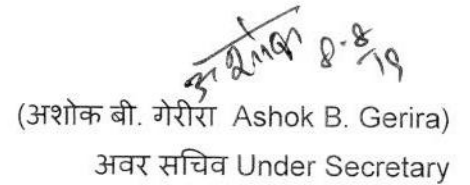 अशोक 8-8/19
(अशोक बी. गेरीरा Ashok B. Gerira)
अवर सचिव Under Secretary